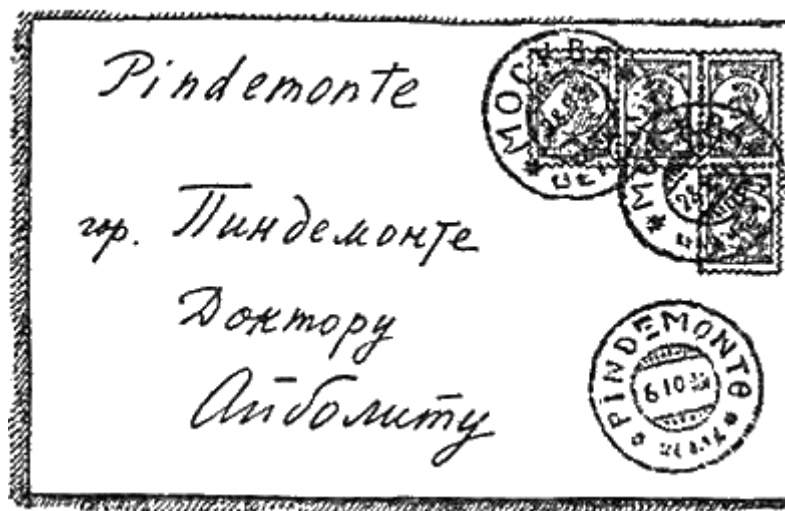 Pindemonte
гор. Пиндемонте
Доктору
Айболиту
*МОСКВА*
PINDEMONTE
6 10 35